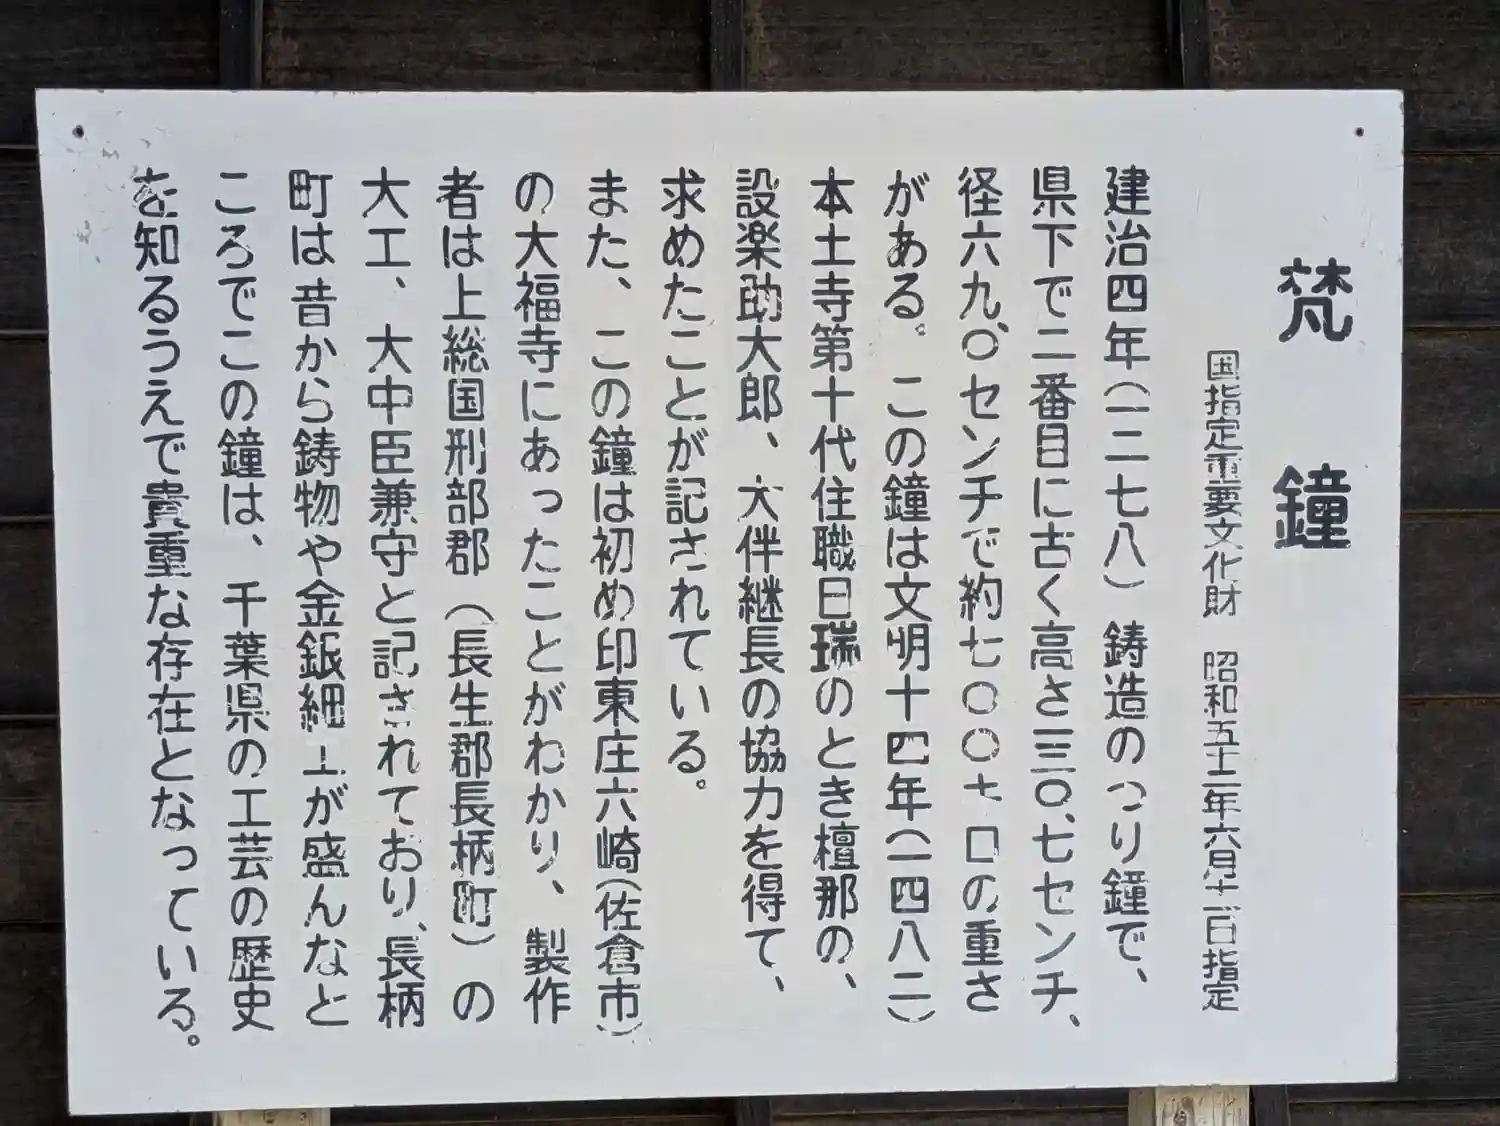 梵鐘
国指定重要文化財　昭和五十二年六月十一日指定
建治四年(一二七八)鋳造のつり鐘で、
県下で二番目に古く高さ一三〇、七センチ、
径六九、〇センチで約七〇〇キロの重さ
がある。この鐘は文明十四年(一四八二)
本土寺第十代住職日瑞のとき檀那の、
設楽助大郎、大伴継長の協力を得て、
求めたことが記されている。
また、この鐘は初め印東庄六崎(佐倉市)
の大福寺にあったことがわかり、製作
者は上総国刑部郡(長生郡長柄町)の
大工、大中臣兼守と記されており、長柄
町は昔から鋳物や金鈑細工が盛んなと
ころでこの鐘は、千葉県の工芸の歴史
を知るうえで貴重な存在となっている。